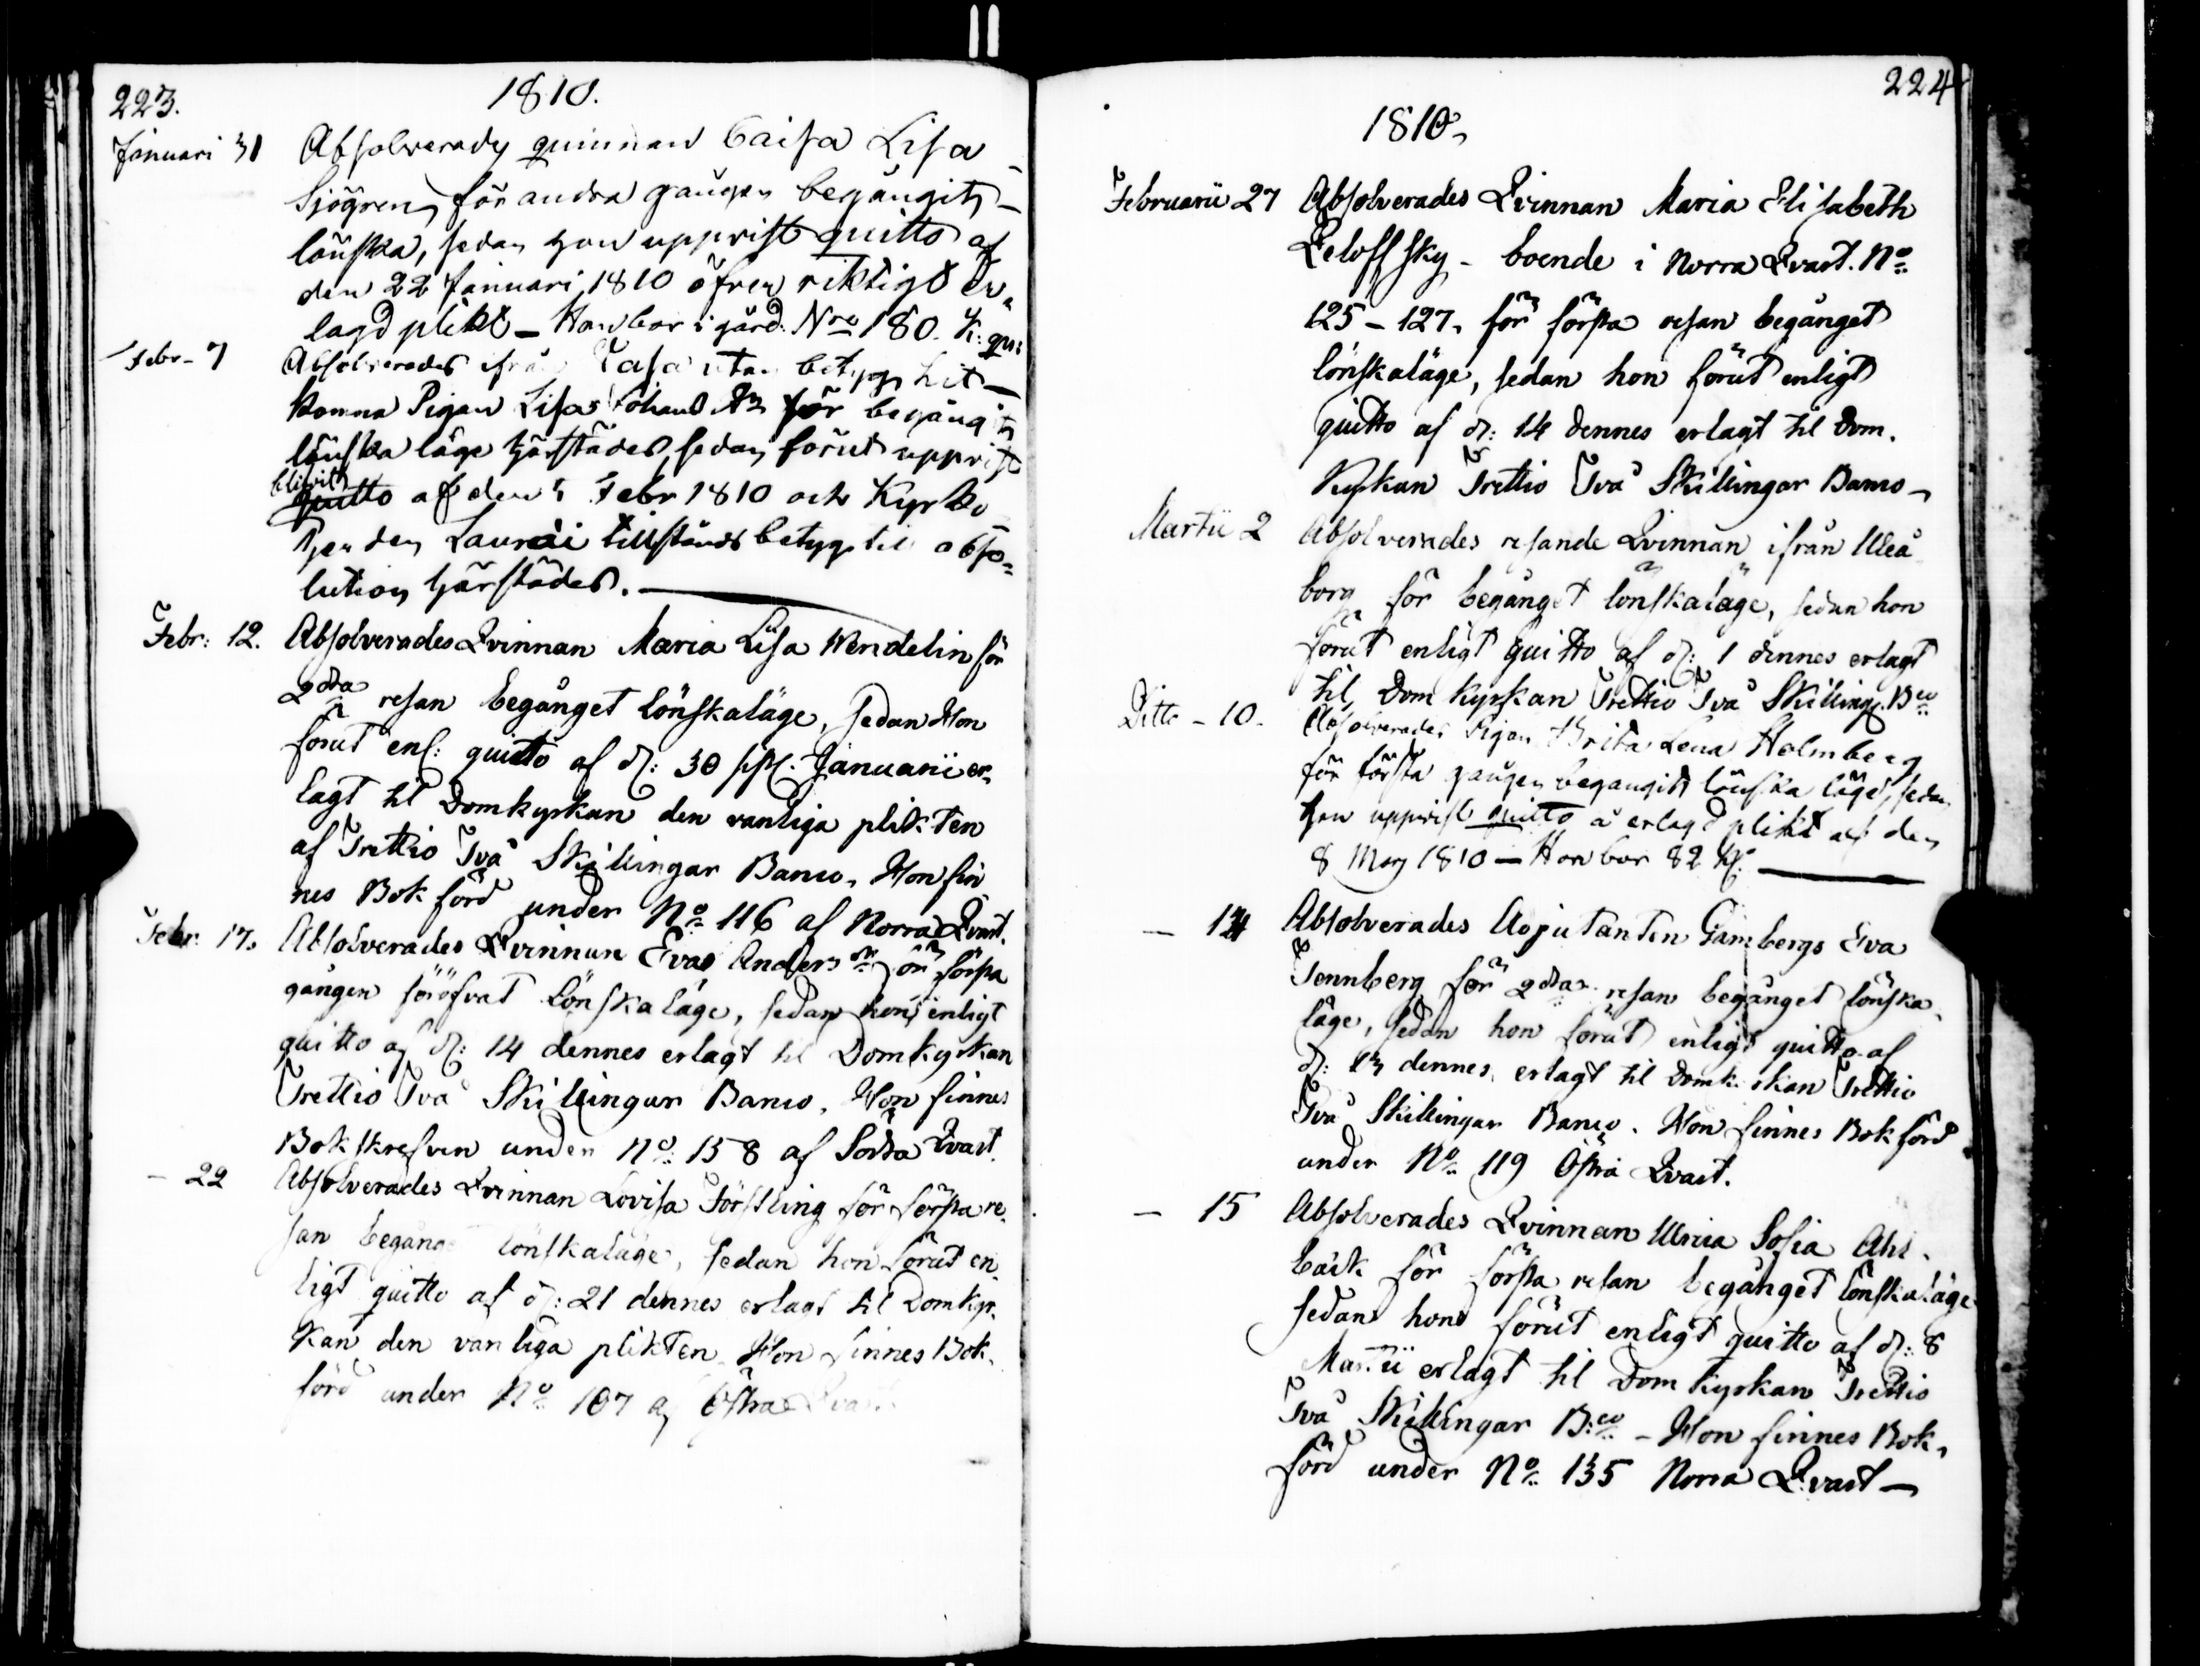 223.
1810.
Januari 31 Absolverades quinnan Caisa Lisa
Sjögren, för andra gången begångit
lönska, sedan hon uppvist quitto af
den 22 Januari 1810 öfver riktigt er-
lagd plikt – Hon bor i gård. Nro 180. K: qu:
Febr. 7 Absolverades ifrån Vasa utan betyg hit-
komna Pigan Lisa Johans Dr för begångit
lönska läge härstädes, sedan förut uppvist
blifvit
quitto af den 5 Febr 1810 och Kyrko
Laurèi tillstånds betyg til abso-
lution härstädes.
Febr: 12. Absolverades Qvinnan Maria Lisa Wendelin för
2dra resan begånget lönskaläge, sedan Hon
förut enl: quitto af d: 30 sistl. Januarii er-
lagt til Domkyrkan den vanliga plikten
af Trettio Två Skillingar Banco. Hon fin
nes Bok förd under No 116 af Norra Qvart.
Febr. 17. Absolverades Qvinnan Eva Anders dr för första
gången föröfvat Lönskaläge, sedan hon enligt
quitto af d: 14 dennes erlagt til Domkyrkan
Trettio Två Skillingar Banco. Hon finnes
Bokskrefven under No: 158 af Södra Qvart.
– 22 Absolverades Qvinnan Lovisa Förstling för första re-
san begånget lönskaläge, sedan hon förut en-
ligt quitto af d: 21 dennes erlagt til Domkyr-
kan den vanliga plikten. Hon finnes Bok-
förd under No 107 af Östra Qvart.
224
1810.
Februarii 27 Absolverades Qvinnan Maria Elisabeth
Zeloffsky – boende i Norra Qvart. No
125 – 127. för första resan begånget
lönskaläge, sedan hon förut enligt
quitto af d: 14 dennes erlagt til Dom.
Kyrkan Trettio Två Skillingar Banco –
Martii 2 Absolverades resande Qvinnan ifrån Uleå
borg för begånget lönskaläge, sedan hon
förut enligt quitto af d: 1 dennes erlagt
til Domkyrkan Trettio Två Skilling. Bco
Ditto – 10. Absolverades Pigan Brita Lena Holmberg
för första gången begångit lönska läge, sedan
hon uppvist quitto å erlagd plikt af den
8 Marz 1810 – Hon bor 82
– 14 Absolverades Adjutanten Gambergs Eva
Tennberg för 2dra resan begånget lönska-
läge, sedan hon förut enligt quitto af
d: 13 dennes, erlagt til Domkyrkan Trettio
Två Skillingar Banco. Hon finnes Bok förd
under No 119 Östra Qvart.
– 15 Absolverades Qvinnan Ulrica Sofia Ahl-
bäck för första resan begånget lönskaläge
sedan hon förut enligt quitto af d: 8
Martii erlagt til Domkyrkan Trettio
Två Skillingar B:co – Hon finnes Bok-
förd under No 135 Norra Qvart –